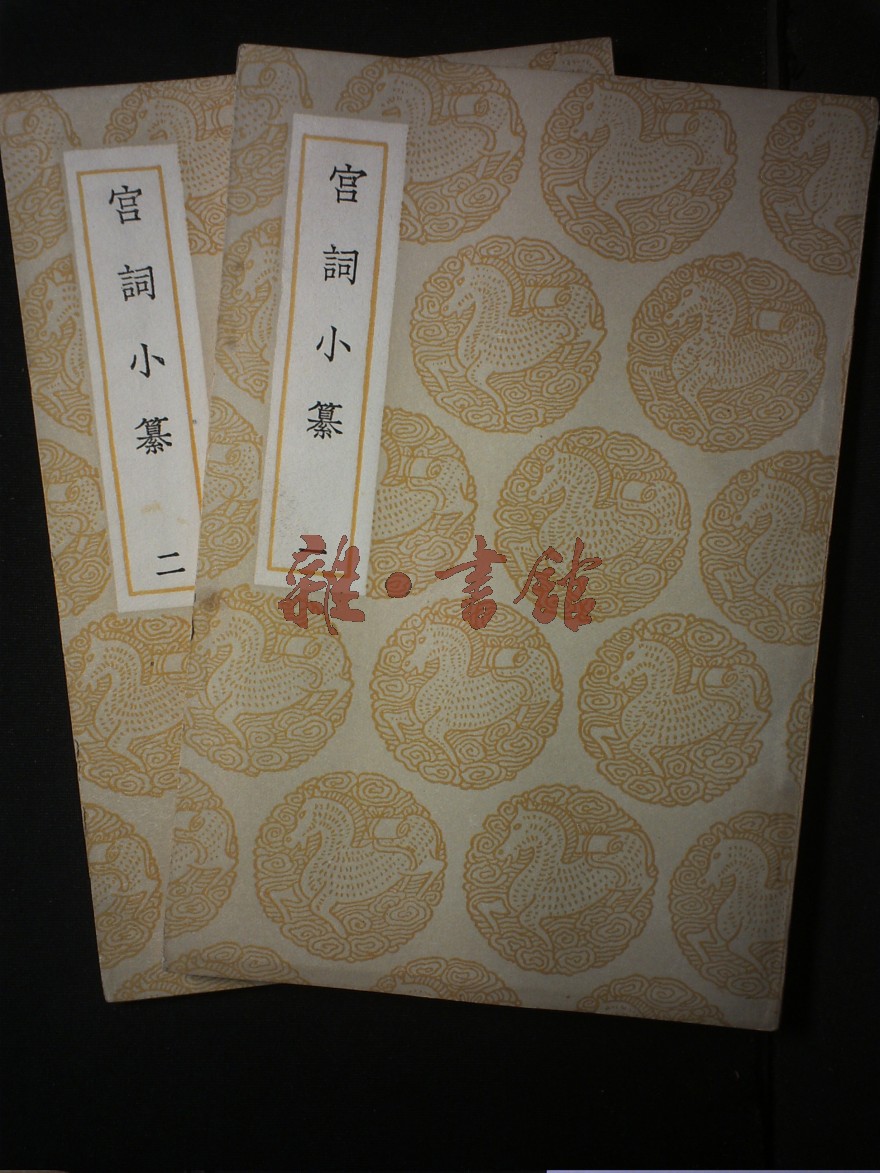 宮詞小纂
一
宮詞小纂
二
雜·書館